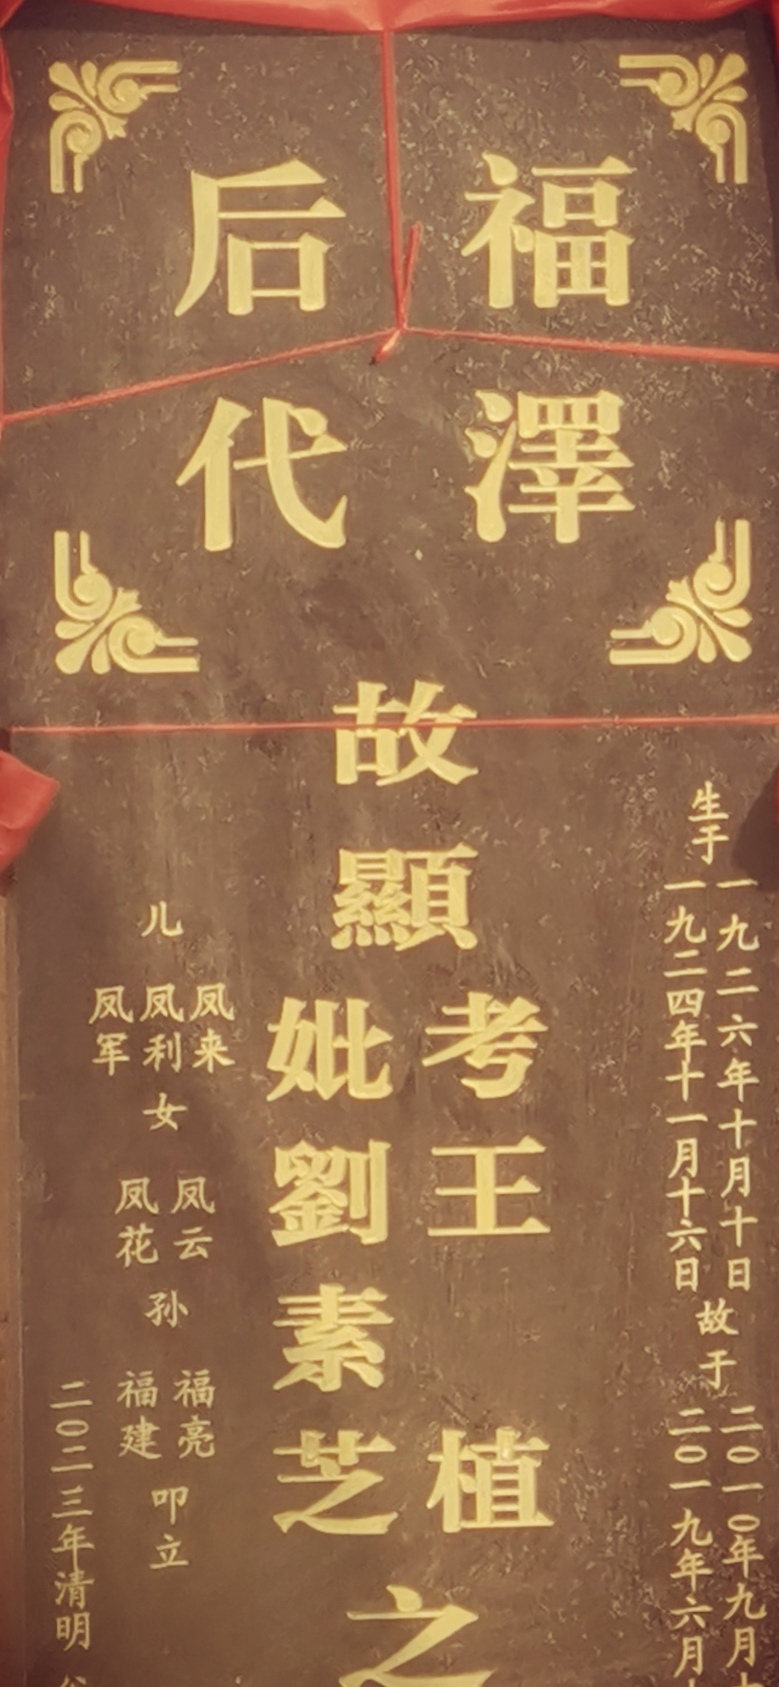 福澤
后代
生于
一九二六年十月十日
一九二四年十一月十六日
故于
二〇一〇年九月
二〇一九年六月
故顯
考王植
妣劉素芝
之
儿
凤来
凤利
凤军
女
凤云
凤花
孙
福亮
福建
叩立
二〇二三年清明